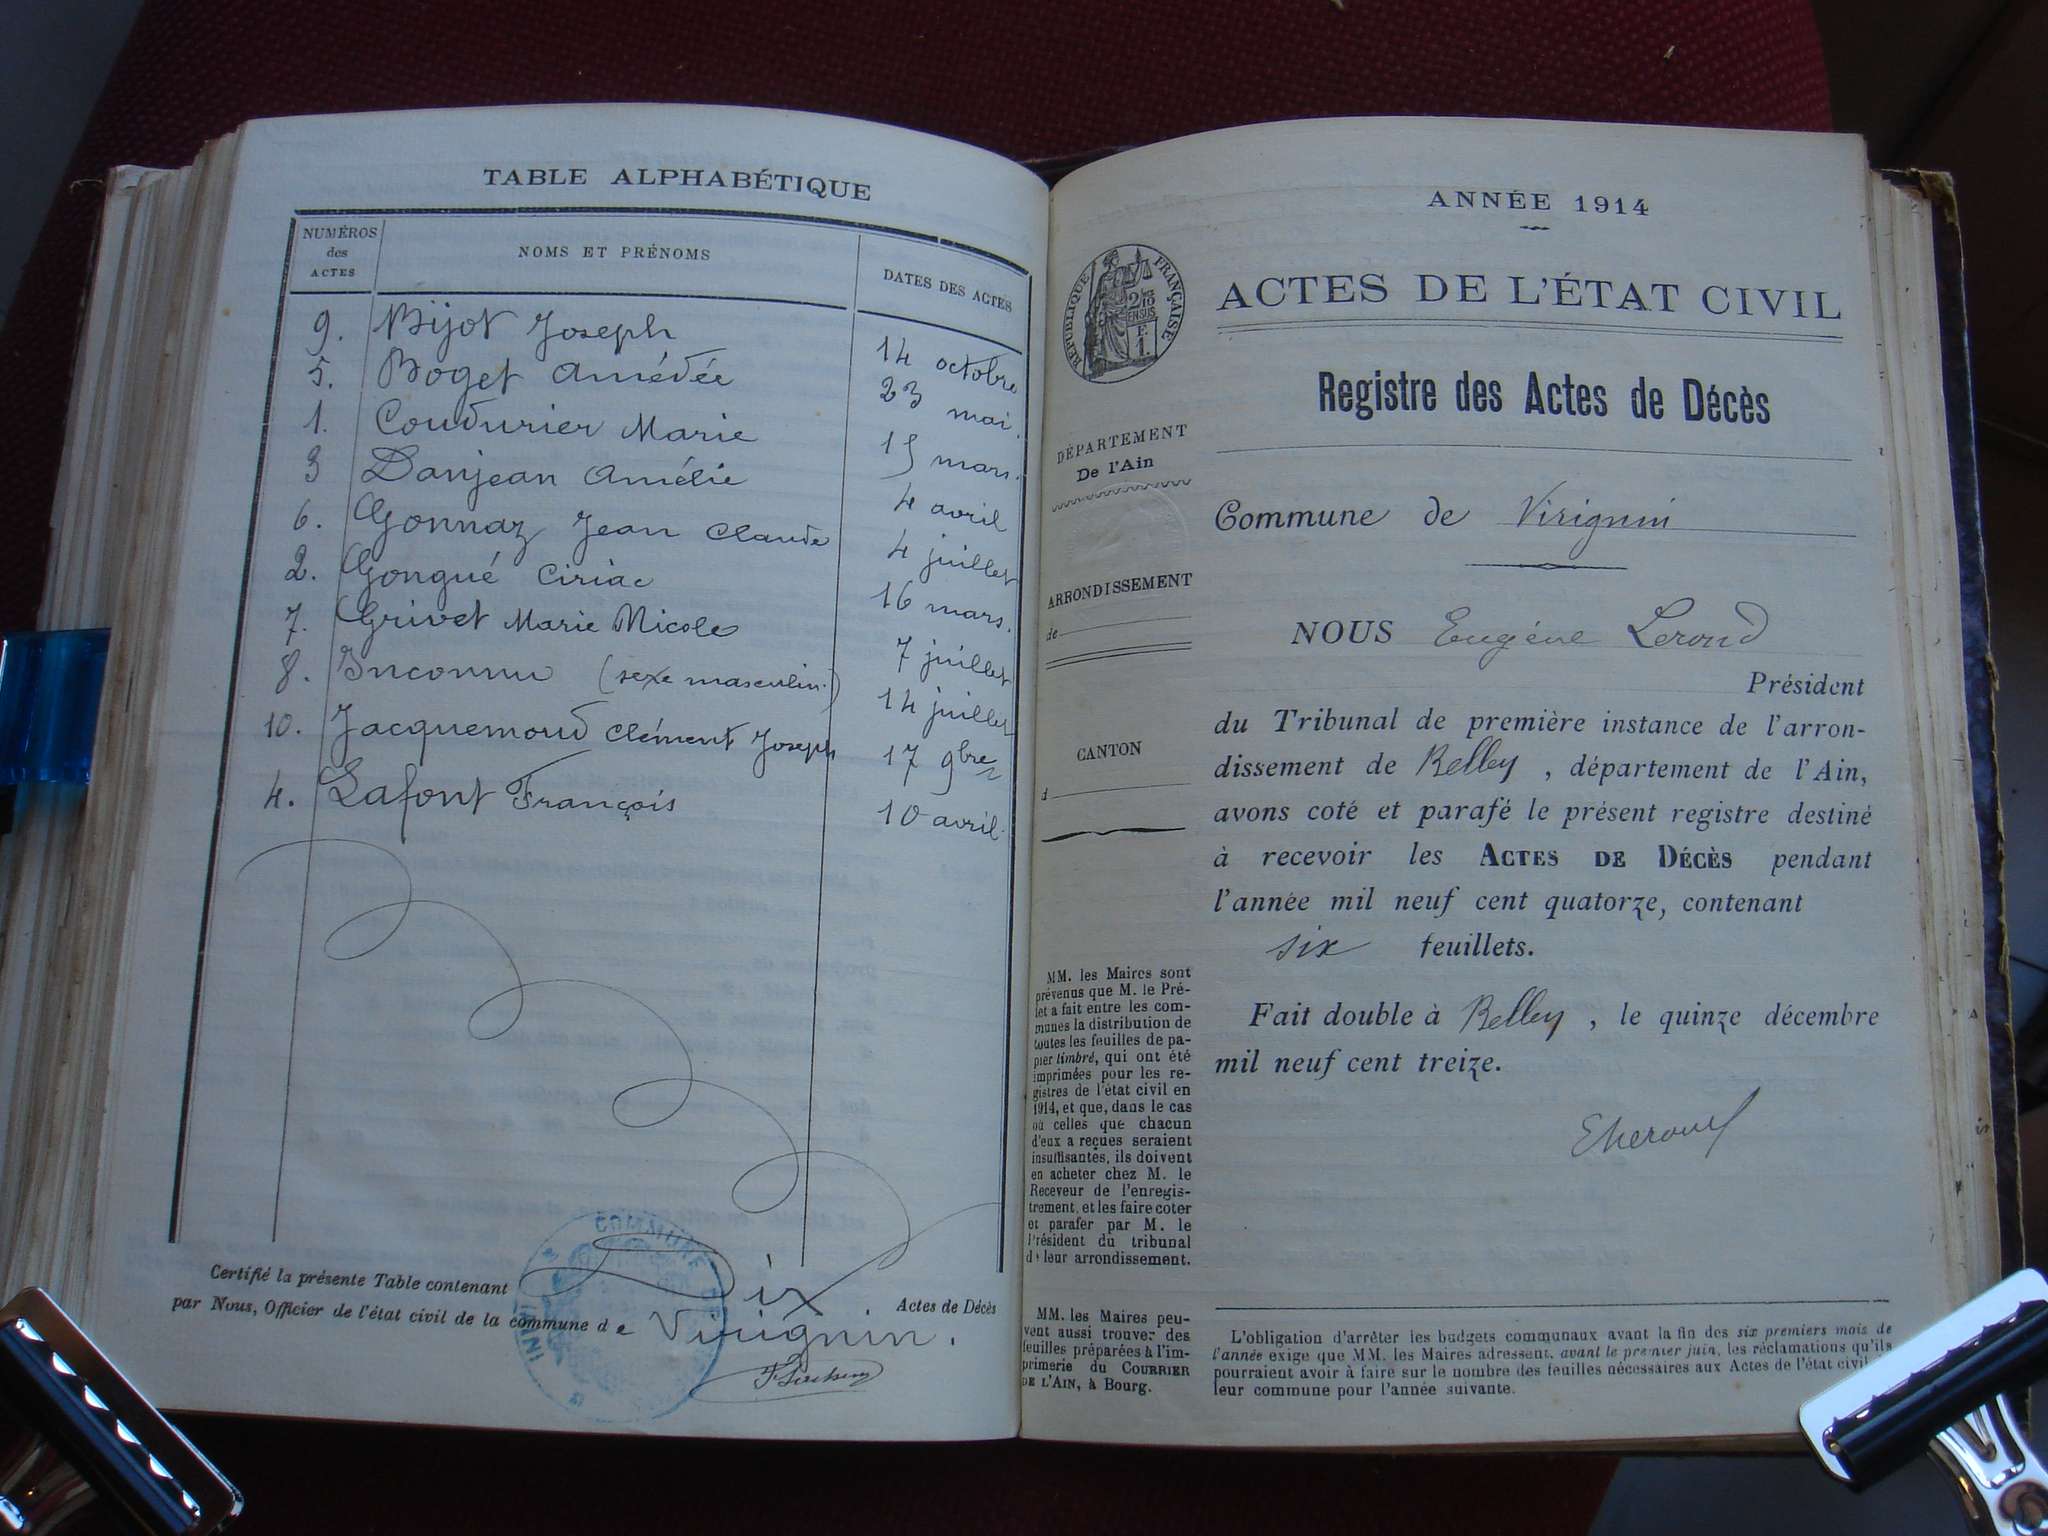 TABLE ALPHABÉTIQUE
NUMÉROS des ACTES
NOMS ET PRÉNOMS
DATES DES ACTES
9. Bijot Joseph 14 octobre
5. Boget Amédée 23 mai.
1. Coudurier Marie 15 mars.
3 Danjean Amélie 4 avril
6. Gonnaz Jean Claude 4 juillet
2. Gongué Ciriac 16 mars.
7. Grivet Marie Nicole 7 juillet
8. Inconnu (sexe masculin.) 14 juillet
10. Jacquemoud Clément Joseph 17 9bre
4. Lafont François 10 avril.
Certifié la présente Table contenant Dix. Actes de Décès
par Nous, Officier de l'état civil de la commune de Virignin.
COMMUNE DE
ANNÉE 1914
RÉPUBLIQUE FRANÇAISE
ACTES DE L'ÉTAT CIVIL
Registre des Actes de Décès
DÉPARTEMENT
De l'Ain
ARRONDISSEMENT
de
CANTON
d
MM. les Maires sont
prévenus que M. le Pré-
fet a fait entre les com-
munes la distribution de
toutes les feuilles de pa-
pier timbré, qui ont été
imprimées pour les re-
gistres de l'état civil en
1914, et que, dans le cas
où celles que chacun
d'eux a reçues seraient
insuffisantes, ils doivent
en acheter chez M. le
Receveur de l'enregis-
trement, et les faire coter
et parafer par M. le
Président du tribunal
de leur arrondissement.
MM. les Maires peu-
vent aussi trouver des
feuilles préparées à l'im-
primerie du COURRIER
DE L'AIN, à Bourg.
Commune de Virignin
NOUS Eugène Leroud
Président
du Tribunal de première instance de l'arron-
dissement de Belley, département de l'Ain,
avons coté et parafé le présent registre destiné
à recevoir les ACTES DE DÉCÈS pendant
l'année mil neuf cent quatorze, contenant
six feuillets.
Fait double à Belley, le quinze décembre
mil neuf cent treize.
L'obligation d'arrêter les budgets communaux avant la fin des six premiers mois de
l'année exige que MM. les Maires adressent, avant le premier juin, les réclamations qu'ils
pourraient avoir à faire sur le nombre des feuilles nécessaires aux Actes de l'état civil
leur commune pour l'année suivante.